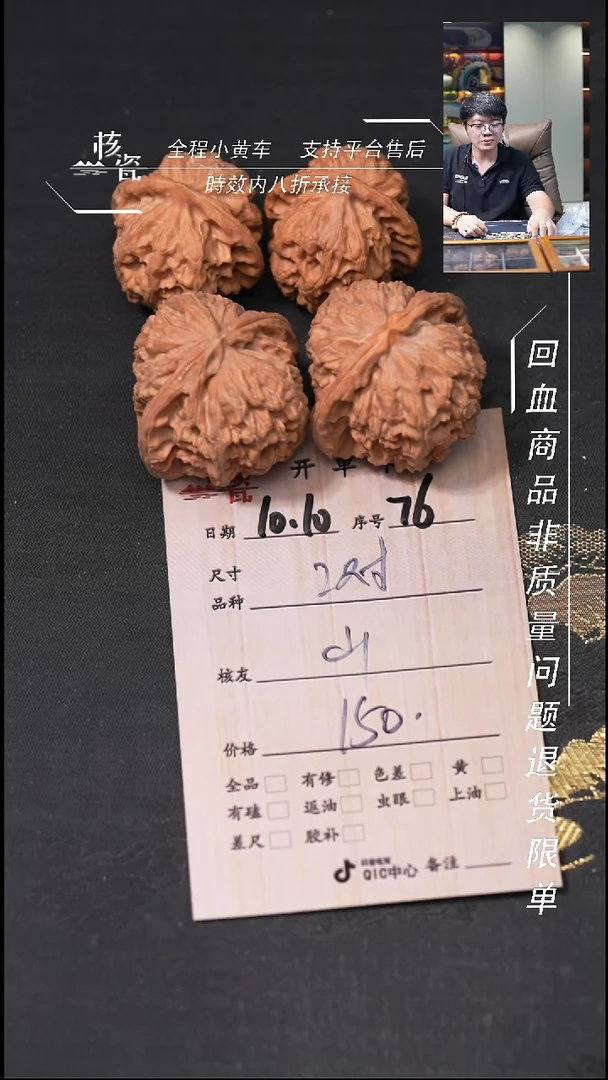 核瓷
全程小黄车 支持平台售后
時效内八折承接
回血商品非质量问题退货限单
开单
日期 10.10 序号 76
尺寸
品种 2对
核友
价格 150.
全品 有修 色差 黄
有磕 返油 虫眼 上油
差尺 胶补
抖音电商
QIC中心 备注